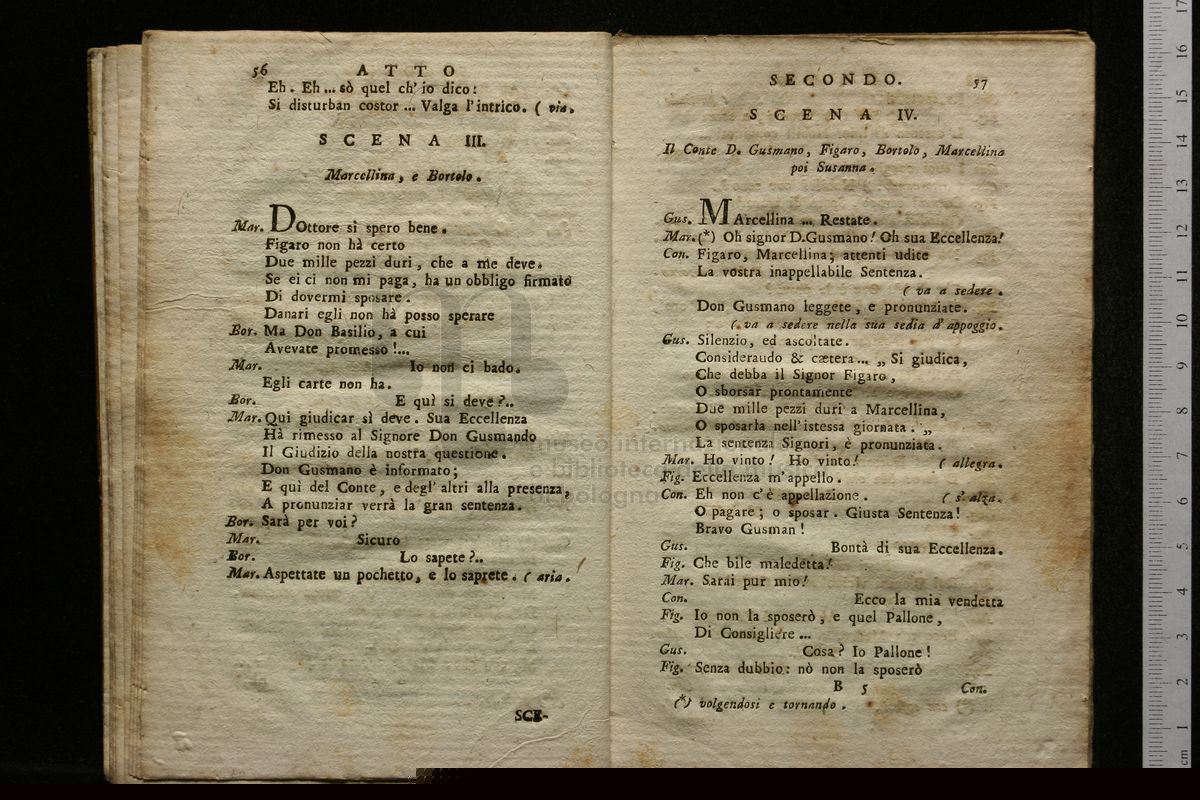 56 ATTO
Eh. Eh... sò quel ch' io dico:
Si disturban costor... Valga l'intrico. ( via.
SCENA III.
Marcellina, e Bortolo.
Mar. DOttore sì spero bene.
Figaro non hà certo
Due mille pezzi duri, che a me deve.
Se ei ci non mi paga, ha un obbligo firmato
Di dovermi sposare.
Danari egli non hà posso sperare
Bor. Ma Don Basilio, a cui
Avevate promesso!...
Mar. Io non ci bado.
Egli carte non ha.
Bor. E quì si deve?..
Mar. Qui giudicar sì deve. Sua Eccellenza
Hà rimesso al Signore Don Gusmando
Il Giudizio della nostra questione.
Don Gusmano è informato;
E quì del Conte, e degl' altri alla presenza,
A pronunziar verrà la gran sentenza.
Bor. Sarà per voi?
Mar. Sicuro
Bor. Lo sapete?..
Mar. Aspettate un pochetto, e lo saprete. ( aria.
SCE-
SECONDO. 57
SCENA IV.
Il Conte D. Gusmano, Figaro, Bortolo, Marcellina
poi Susanna.
Gus. MArcellina ... Restate.
Mar.(*) Oh signor D.Gusmano! Oh sua Eccellenza!
Con. Figaro, Marcellina; attenti udite
La vostra inappellabile Sentenza.
( va a sedere.
Don Gusmano leggete, e pronunziate.
( va a sedere nella sua sedia d'appoggio.
Gus. Silenzio, ed ascoltate.
Consideraudo & cætera... „ Si giudica,
Che debba il Signor Figaro,
O sborsar prontamente
Due mille pezzi duri a Marcellina,
O sposarla nell'istessa giornata. „
La sentenza Signori, è pronunziata.
Mar. Ho vinto! Ho vinto! ( allegra.
Fig. Eccellenza m'appello.
Con. Eh non c'è appellazione. ( s'alza.
O pagare; o sposar. Giusta Sentenza!
Bravo Gusman!
Gus. Bontà di sua Eccellenza.
Fig. Che bile maledetta!
Mar. Sarai pur mio!
Con. Ecco la mia vendetta
Fig. Io non la sposerò, e quel Pallone,
Di Consigliere ...
Gus. Cosa? Io Pallone!
Fig. Senza dubbio: nò non la sposerò
B 5 Con.
(*) volgendosi e tornando.